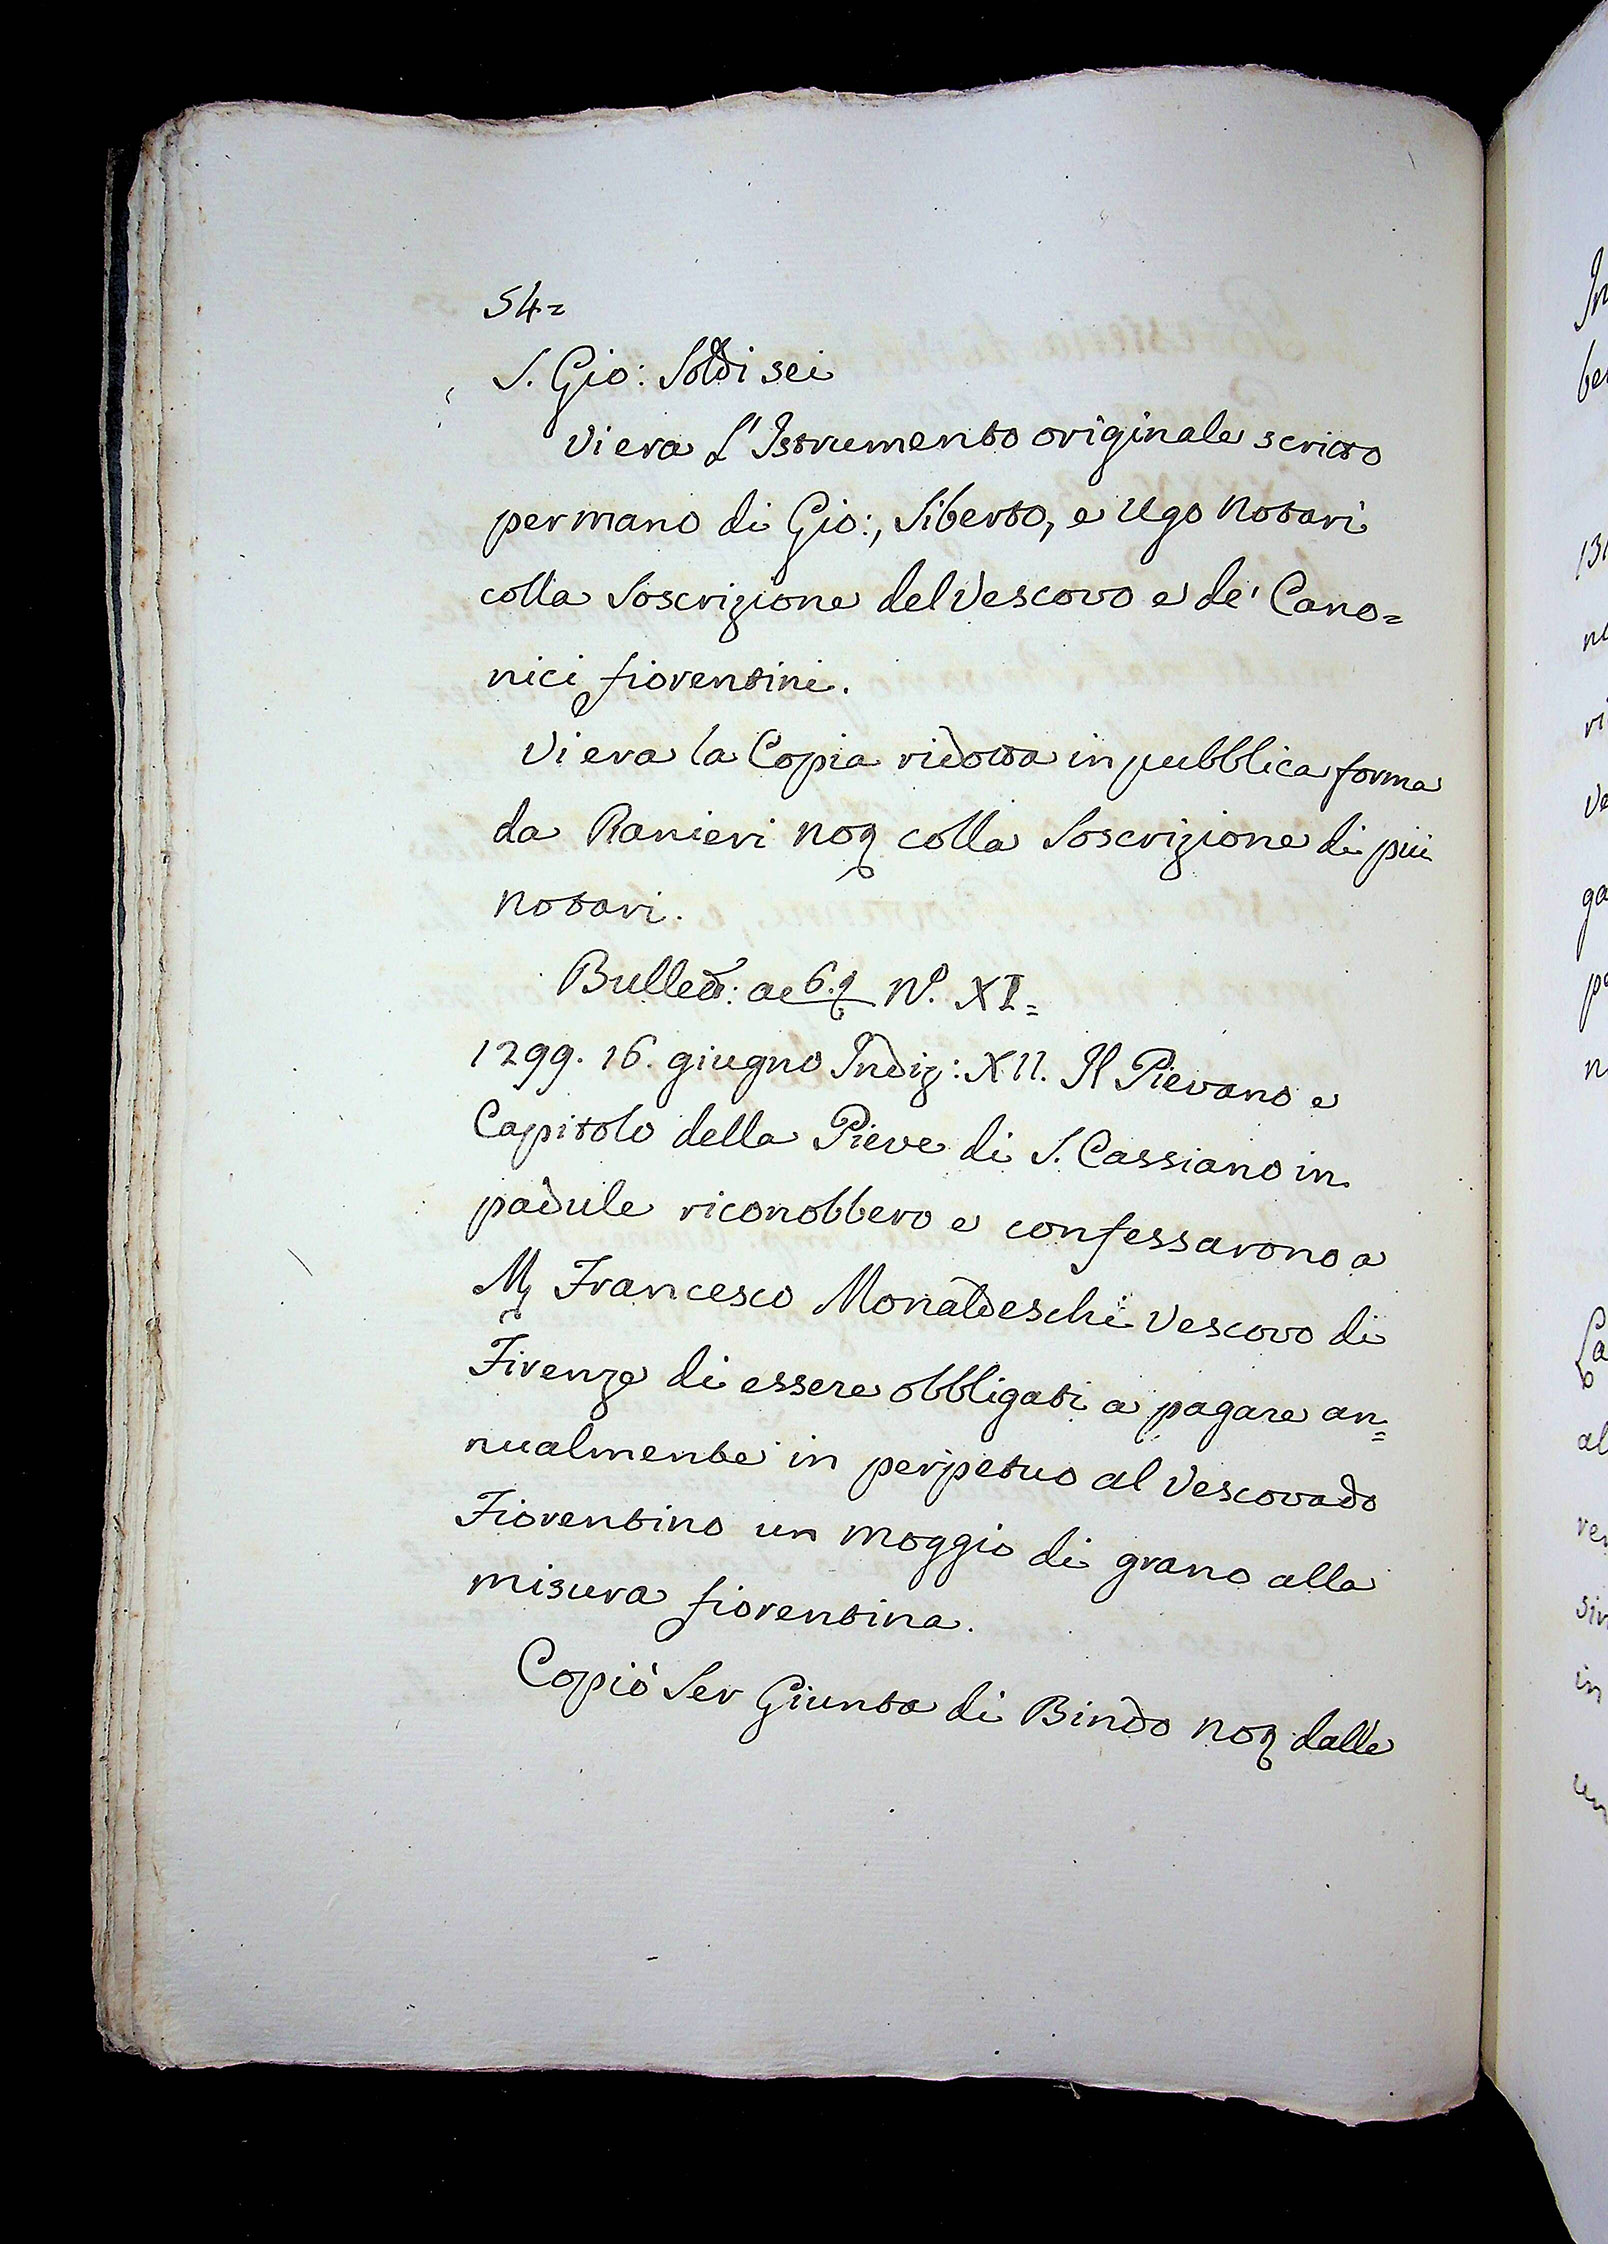 54=
S. Gio: Soldi sei
Vi era L'Istrumento originale scritto
per mano di Gio:, Siberto, e Ugo Notari
colla Soscrizione del Vescovo e de' Cano=
nici fiorentini.
Vi era la Copia ridotta in pubblica forma
da Ranieri Noz colla Soscrizione di più
Notari.
Bullet: ac 69 N.º XI=
1299. 16. giugno Indiz: XII. Il Pievano e
Capitolo della Pieve di S. Cassiano in
padule riconobbero e confessarono a
M Francesco Monaldeschi Vescovo di
Firenze di essere obbligati a pagare an=
nualmente in perpetuo al Vescovado
Fiorentino un moggio di grano alla
misura fiorentina.
Copiò Ser Giunta di Bindo Noz dalle